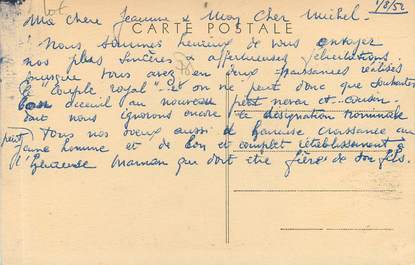 1/8/52
Ma Chère Jeanne & Mon Cher Michel -
CARTE POSTALE
Nous sommes heureux de vous envoyer
nos plus sincères & affectueuses félicitations
puisque vous avez en deux naissances réalisé
le "Couple royal". Et on ne peut donc que souhaiter
bon accueil au nouveau petit neveu et cousin
dont nous ignorons encore la désignation nominale
Tous nos vœux aussi de bonne croissance au
petit jeune homme et de bon et complet rétablissement à
l'heureuse maman qui doit être fière de son fils.